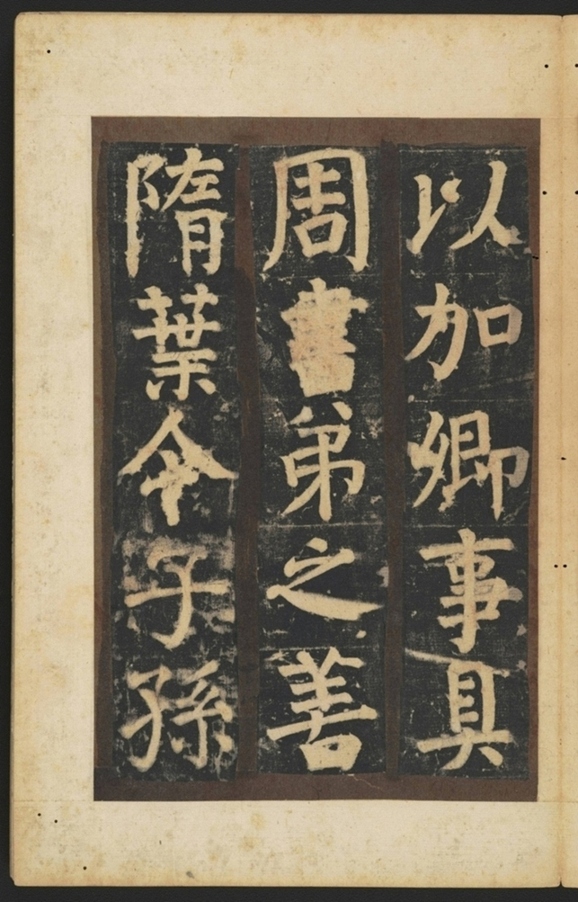 以加卿事具
周書弟之善
隋葉令子孫